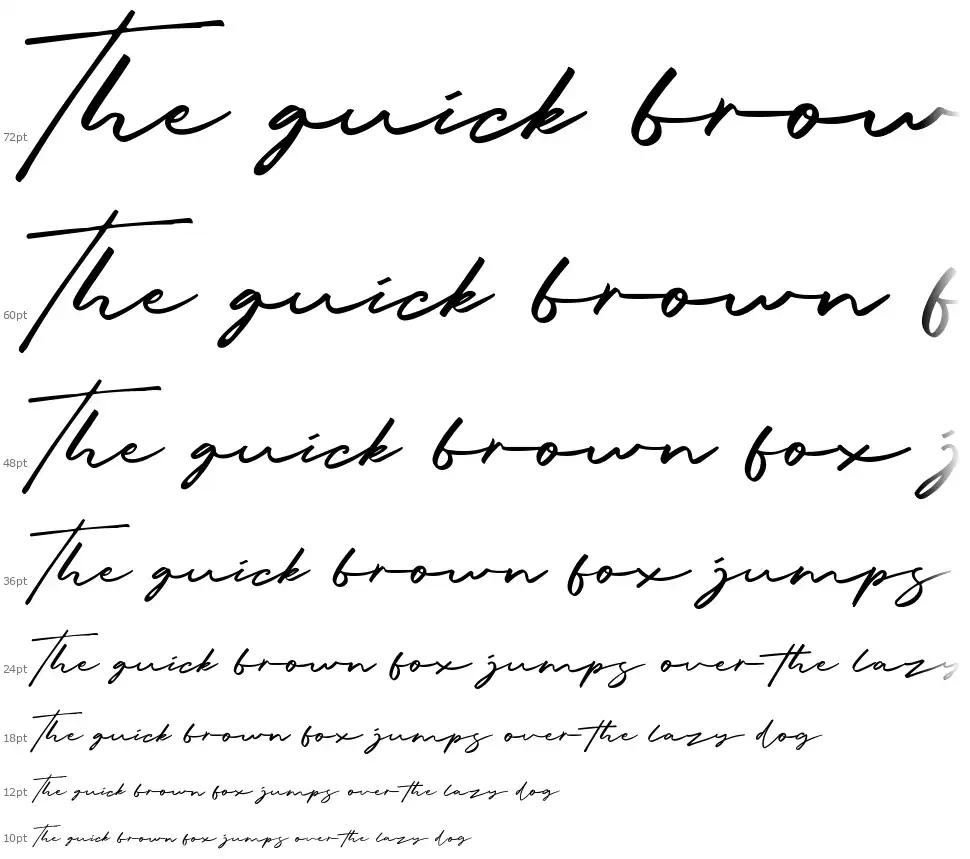 72pt The quick brow
60pt The quick brown f
48pt The quick brown fox j
36pt The quick brown fox jumps
24pt The quick brown fox jumps over the lazy
18pt The quick brown fox jumps over the lazy dog
12pt The quick brown fox jumps over the lazy dog
10pt The quick brown fox jumps over the lazy dog